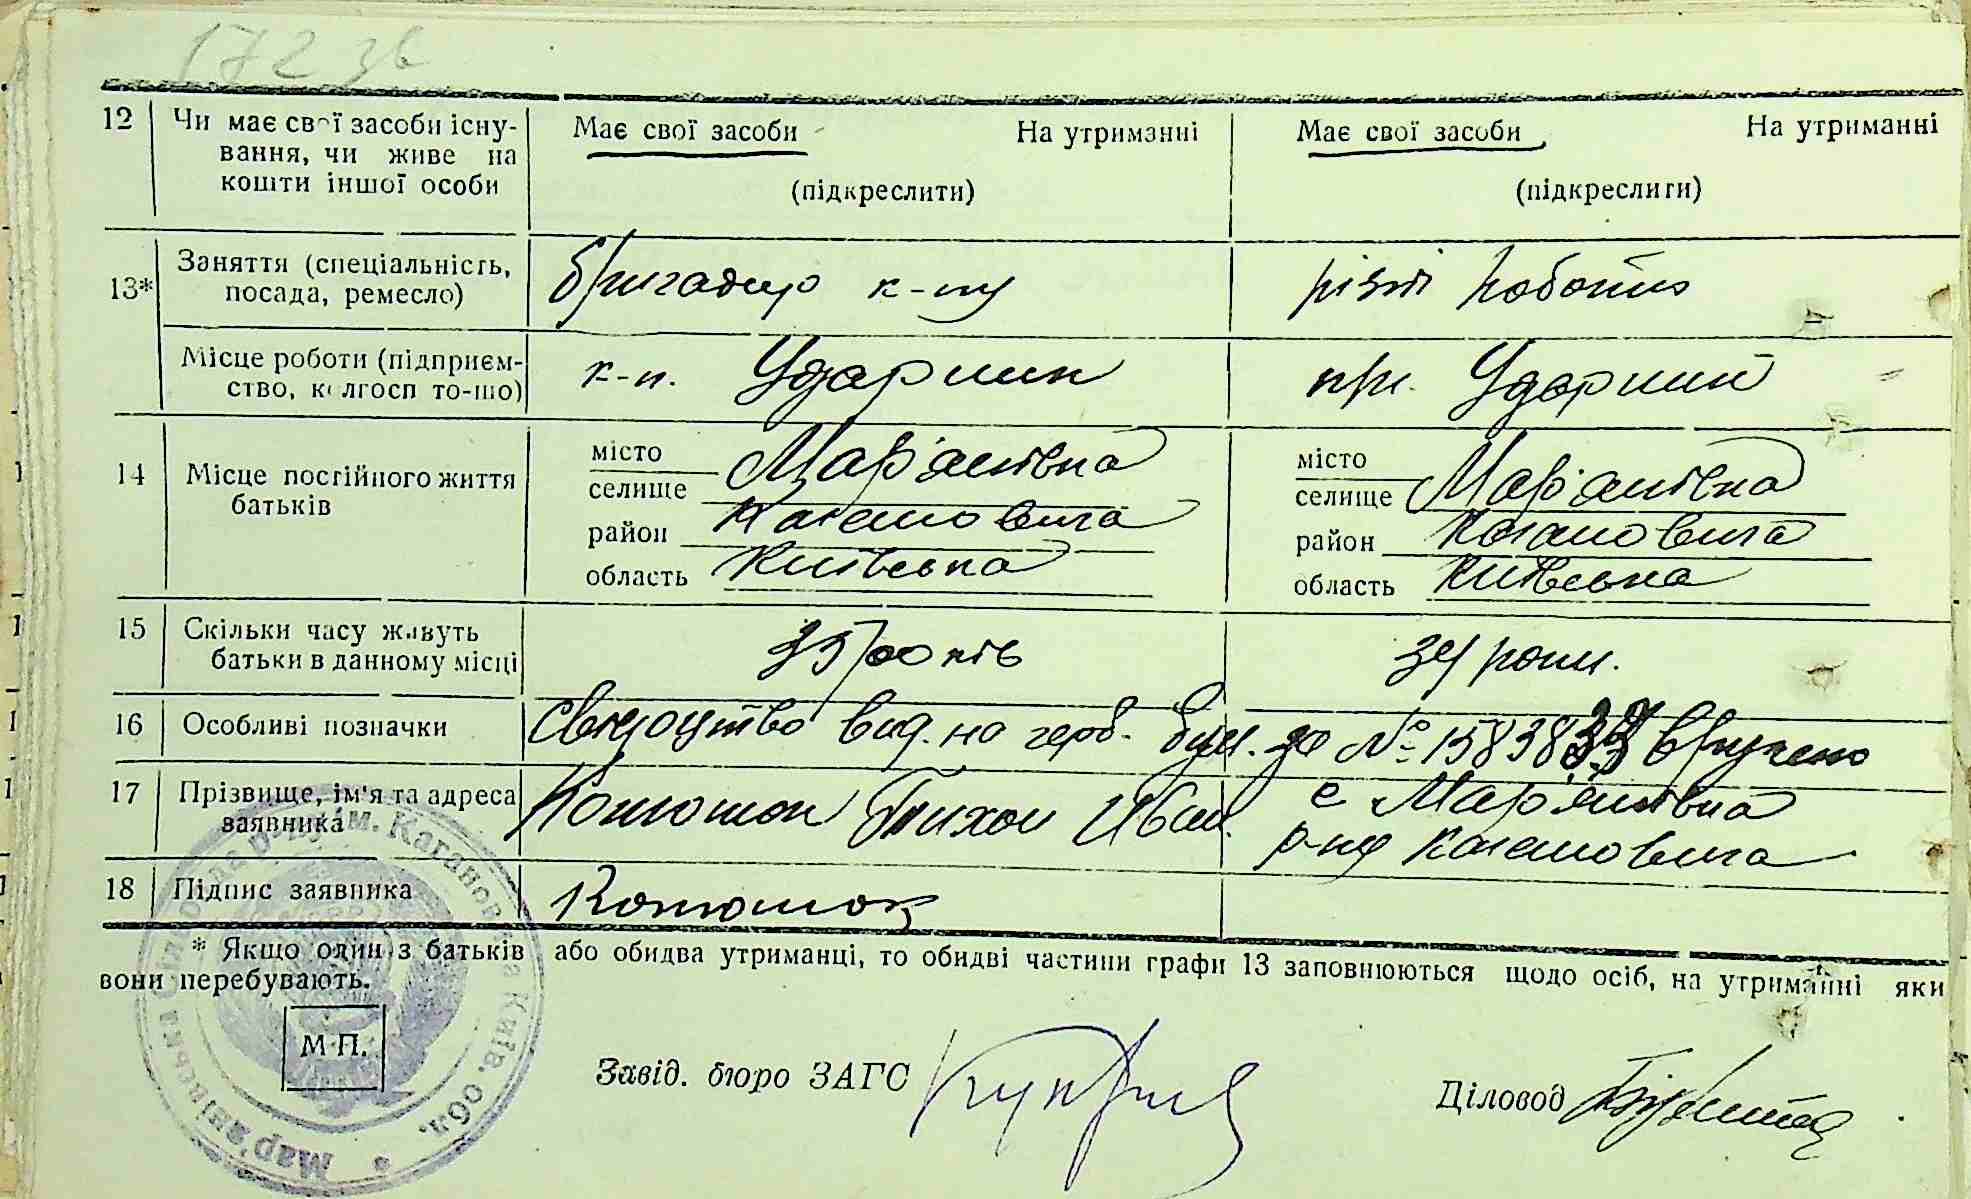 172 зв
12 Чи має свої засоби існу- Має свої засоби На утриманні Має свої засоби На утриманні
вання, чи живе на
кошти іншої особи (підкреслити) (підкреслити)
13* Заняття (спеціальність, бригадир к-пу різні роботи
посада, ремесло)
Місце роботи (підприєм- к-п. Ударник Ударник
ство, колгосп то-що)
14 Місце постійного життя батьків місто Мар'янівка місто Мар'янівка
селище селище
район Кагановича район Кагановича
область Київська область Київська
15 Скільки часу живуть 35 років 34 роки.
батьки в данному місці
16 Особливі позначки Свидоцтво вид. на герб. бум. за № 158383 вручено
17 Прізвище, ім'я та адреса Конюшок Тихон Иван. с Мар'янівка
заявника р-ну Кагановича
18 Підпис заявника Конюшок
* Якщо один з батьків або обидва утриманці, то обидві частини графи 13 заповнюються щодо осіб, на утриманні яки
вони перебувають.
М.П.
Завід. бюро ЗАГС Діловод
Мар'янівська сільрада р-ну ім. Кагановича Київ. обл.